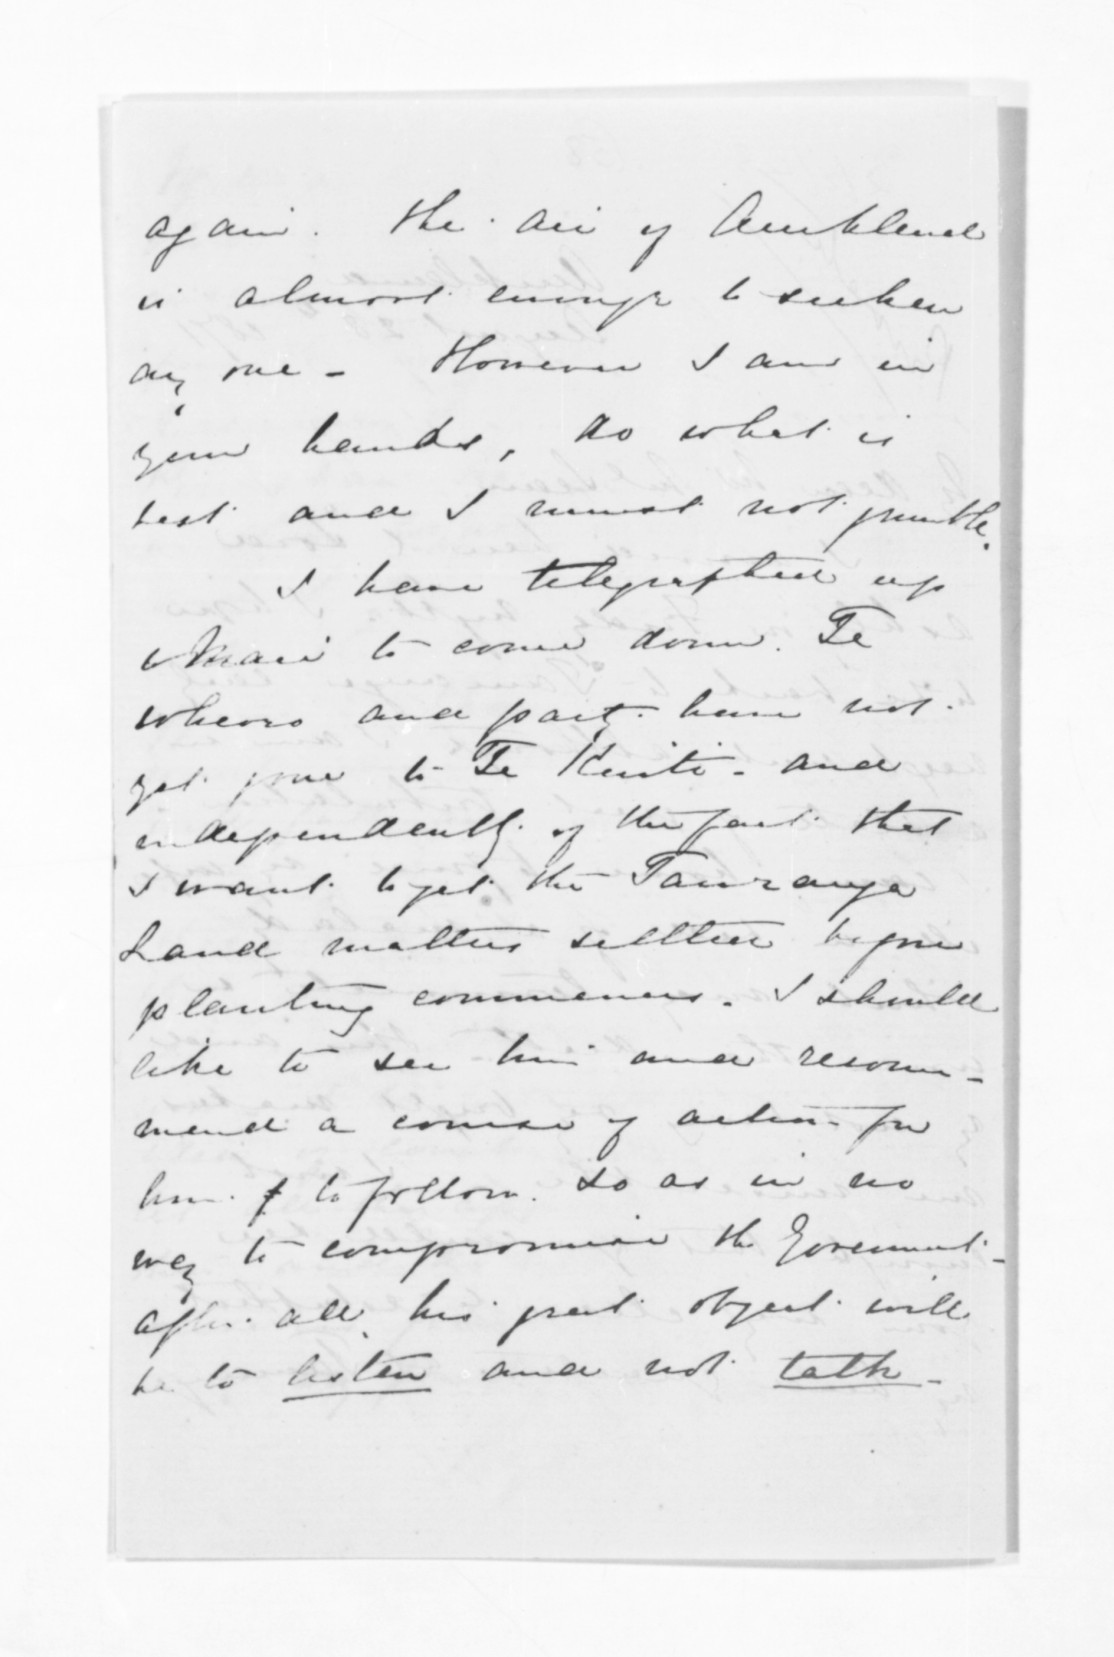 again. The air of Auckland
is almost enough to sicken
any one - However I am in
your hands, do what is
best and I must not grumble.
I have telegraphed up
to come down. Te
Wheoro and party have not
yet gone to Te Kuiti - and
independently of the fact that
I want to get the Tauranga
Land matters settled before
planting commences. I should
like to see him and recom-
mend a course of action for
him to follow. So as in no
way to compromise the Goverment -
after all, his great object will
be to listen and not talk -